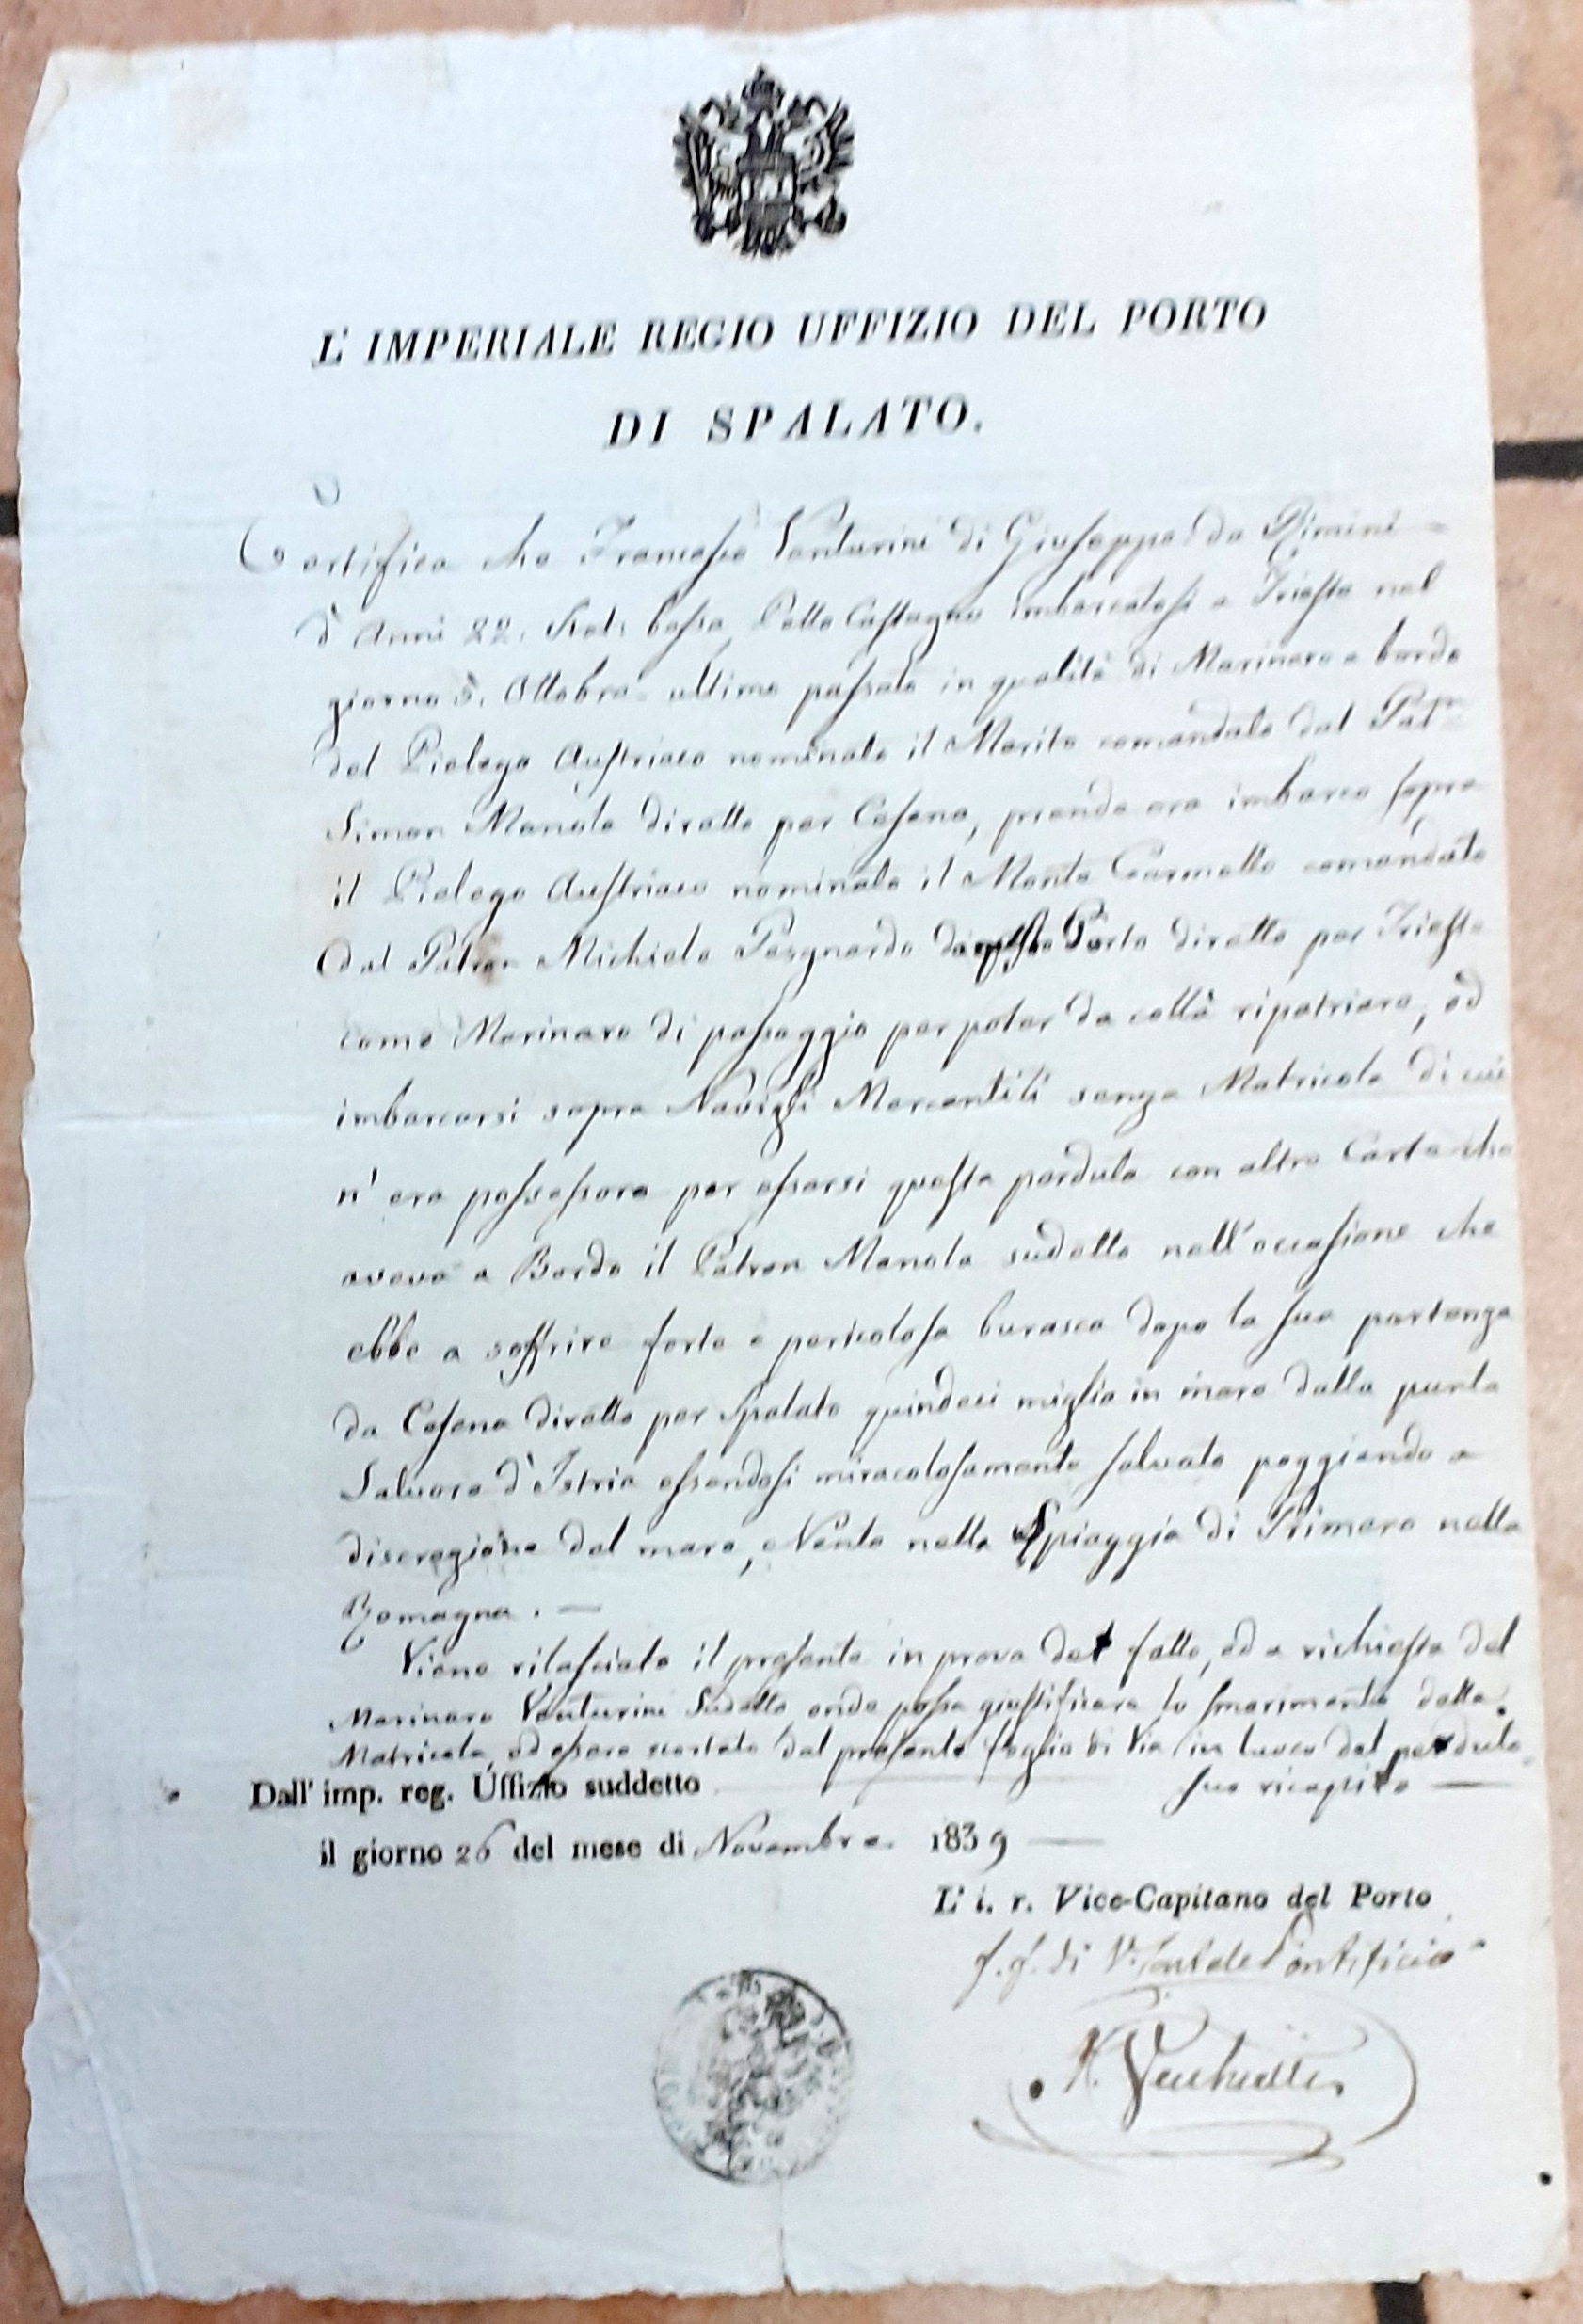 L' IMPERIALE REGIO UFFIZIO DEL PORTO
DI SPALATO.
Certifica che Francesco Venturini di Giuseppe da Rimini
d' Anni 22. Stat: bassa, Pelo Castagno imbarcatosi a Trieste nel
giorno 5. Ottobre ultimo passato in qualità di Marinaro a bordo
del Pielego Austriaco nominato il Merito comandato dal Patn
Simon Manola diretto per Cesena, prende ora imbarco sopra
il Pielego Austriaco nominato il Monte Carmello comandato
dal Patron Michiele da questo Porto diretto per Trieste
come Marinaro di passaggio per poter da collà ripatriare, od
imbarcarsi sopra Navigli Mercantili senza Matricola di cui
n' era possessore per essersi questa perduta con altre Carte che
aveva a Bordo il Patron Manola sudetto nell' occasione che
ebbe a soffrire forte e pericolosa burasca dopo la sua partenza
da Cesena diretto per Spalato quindeci miglia in mare dalla punta
Salvore d' Istria essendosi miracolosamente salvato poggiando a
discrezione del mare, e Vento nella Spiaggia di Primaro nella
Romagna. —
Viene rilasciato il presente in prova del fatto, ed a richiesta del
Marinaro Venturini Sudetto onde possa giustificare lo smarimento della
Matricola, ed essere scortato dal presente foglio di Via in luoco del perduto
suo ricapito —
Dall' imp. reg. Uffizio suddetto
il giorno 26 del mese di Novembre 1839 —
L' i. r. Vice-Capitano del Porto
f. f. di V. Console Pontificio